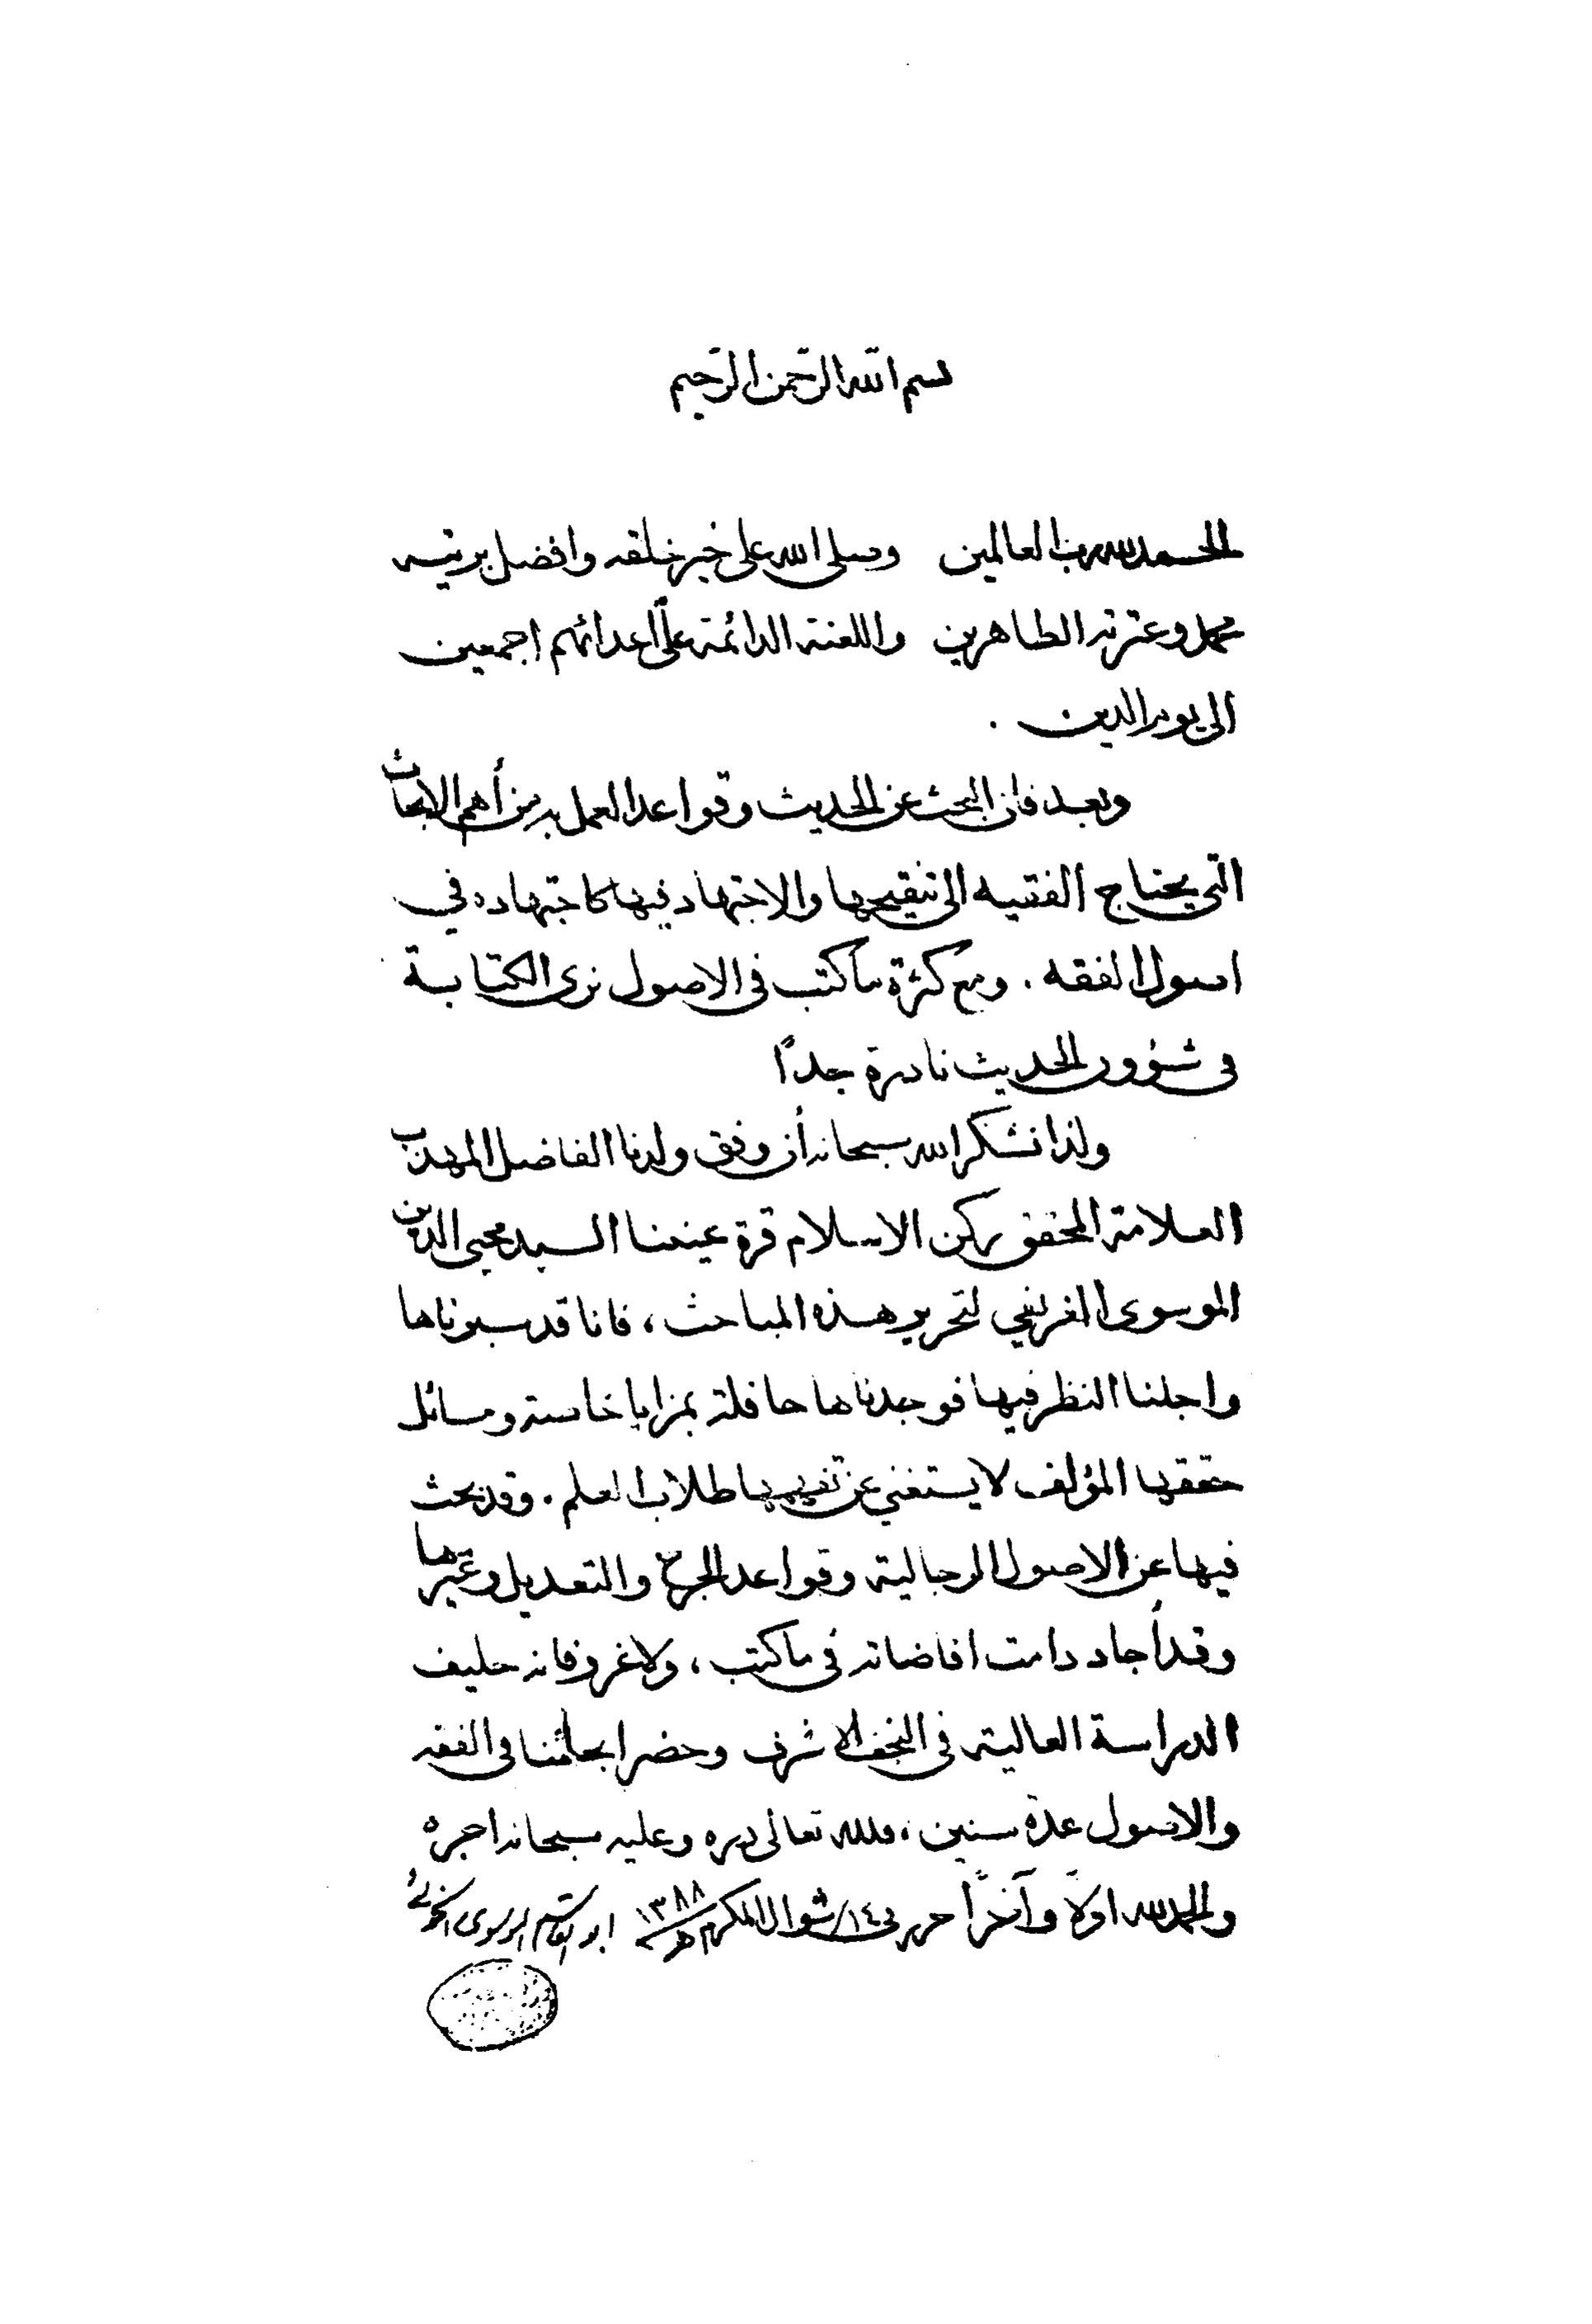 بسم الله الرحمن الرحيم
الحمد لله رب العالمين وصلى الله على خير خلقه وافضل بريته
محمد وعترته الطاهرين واللعنة الدائمة على أعدائهم اجمعين
الى يوم الدين .
وبعد فان البحث عن الحديث وقواعد العمل به من أهم الابحاث
التي يحتاج الفقيه الى تنقيحها والاجتهاد فيها كاجتهاده في
اصول الفقه . ومع كثرة ما كتب في الاصول نرى الكتابة
في شؤون الحديث نادرة جداً
ولذا نشكر الله سبحانه أن وفق ولدنا الفاضل المهذب
العلامة المحقق ركن الاسلام قرة عيننا السيد محيى الدين
الموسوى الغريفي لتحرير هذه المباحث ، فانا قد سبرناها
واجلنا النظر فيها فوجدناها حافلة بمزايا خاصة ومسائل
حققها المؤلف لا يستغني عن تفهمها طلاب العلم . وقد بحث
فيها عن الاصول الرجالية وقواعد الجرح والتعديل وغيرها
وقد أجاد دامت افاضاته في ما كتب ، ولا غرو فانه حليف
الدراسة العالية في النجف الاشرف وحضر ابحاثنا في الفقه
والاصول عدة سنين ، فلله تعالى دره وعليه سبحانه اجره
والحمد لله اولاً وآخراً حرر في ١٤/ شوال المكرم ١٣٨٨ هـ ابو القاسم الموسوى الخوئي